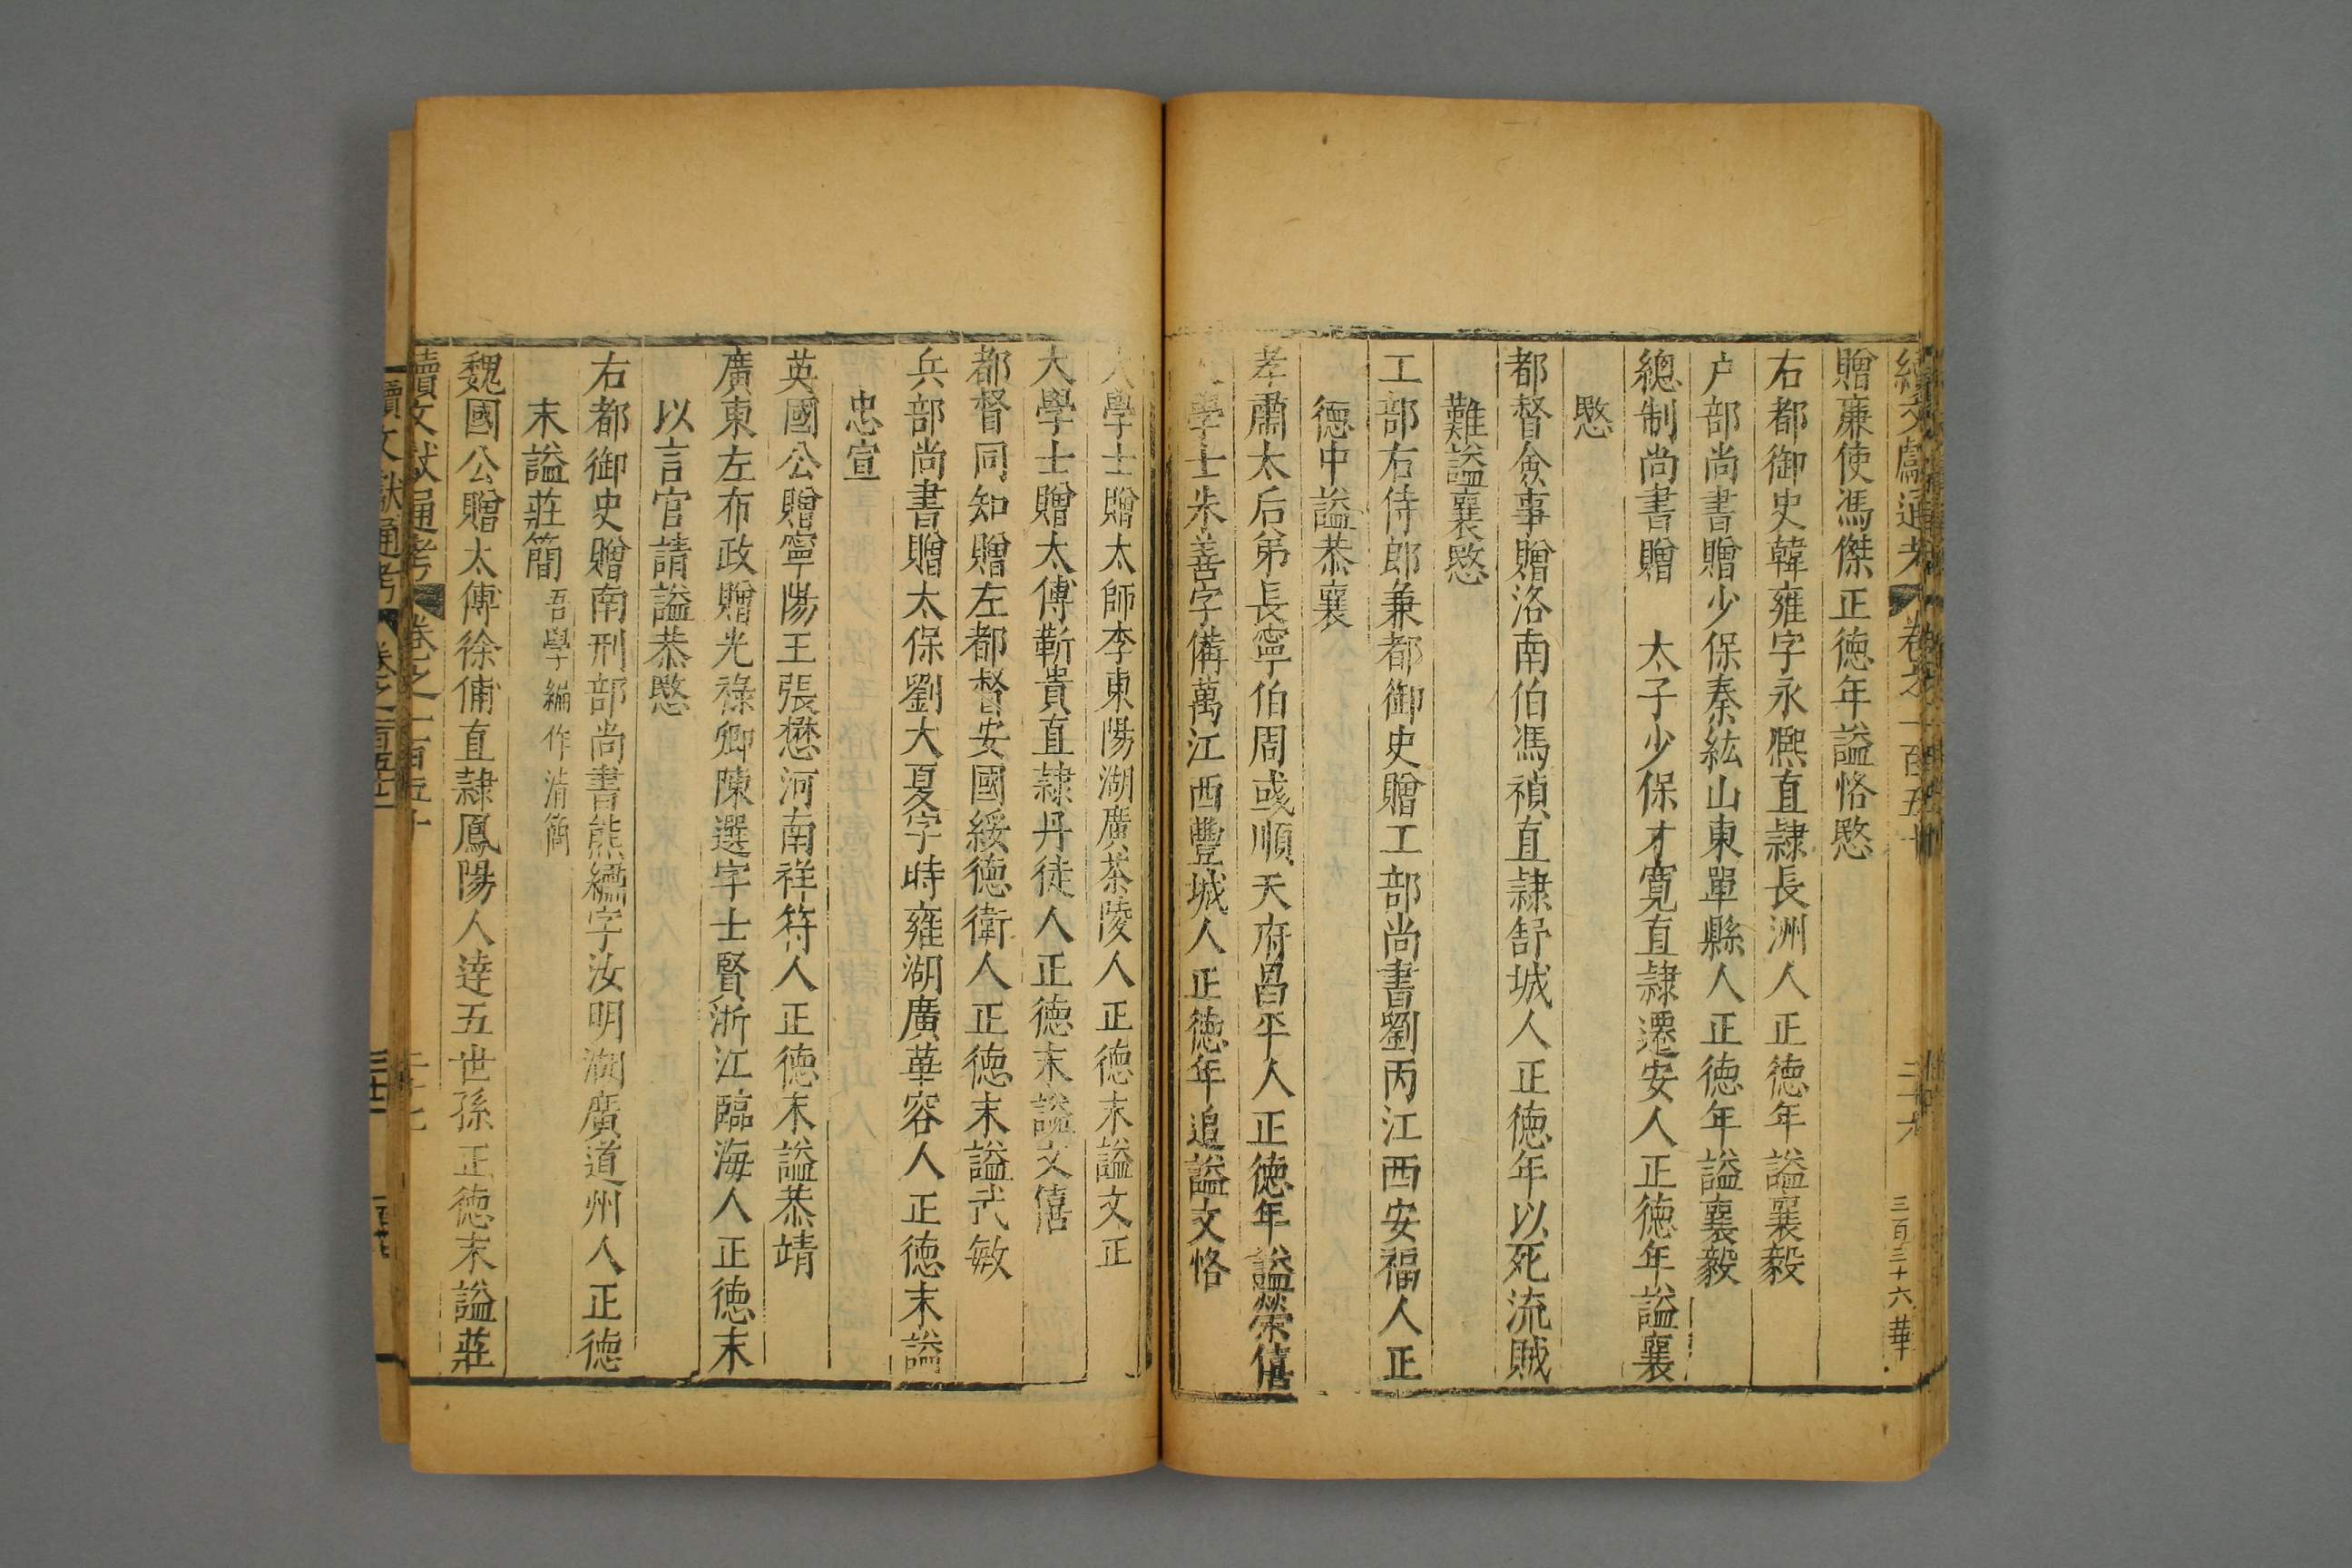 續文獻通考 卷之一百五十 二十六 三百三十六 華
贈廉使馮傑正德年謚恪愍
右都御史韓雍字永熈直隷長洲人正德年謚襄毅
户部尚書贈少保秦紘山東單縣人正德年謚襄毅
總制尚書贈 太子少保才寛直隷遷安人正德年謚襄
愍
都督僉事贈洛南伯馮禎直隷舒城人正德年以死流賊
難謚襄愍
工部右侍郎兼都御史贈工部尚書劉丙江西安福人正
德中謚恭襄
孝肅太后弟長寧伯周彧順天府昌平人正德年謚榮僖
學士朱善字備萬江西豐城人正德年追謚文恪
大學士贈太師李東陽湖廣茶陵人正德末謚文正
大學士贈太傅靳貴直隷丹徒人正德末謚文僖
都督同知贈左都督安國綏德衛人正德末謚武敏
兵部尚書贈太保劉大夏字時雍湖廣華容人正德末謚
忠宣
英國公贈寧陽王張懋河南祥符人正德末謚恭靖
廣東左布政贈光祿卿陳選字士賢浙江臨海人正德末
以言官請謚恭愍
右都御史贈南刑部尚書熊繡字汝明湖廣道州人正德
末謚莊簡 吾學編作清簡
魏國公贈太傅徐俌直隷鳳陽人逹五世孫正德末謚莊
續文獻通考 卷之一百五十 二十七
續文獻通考 卷之一百五十